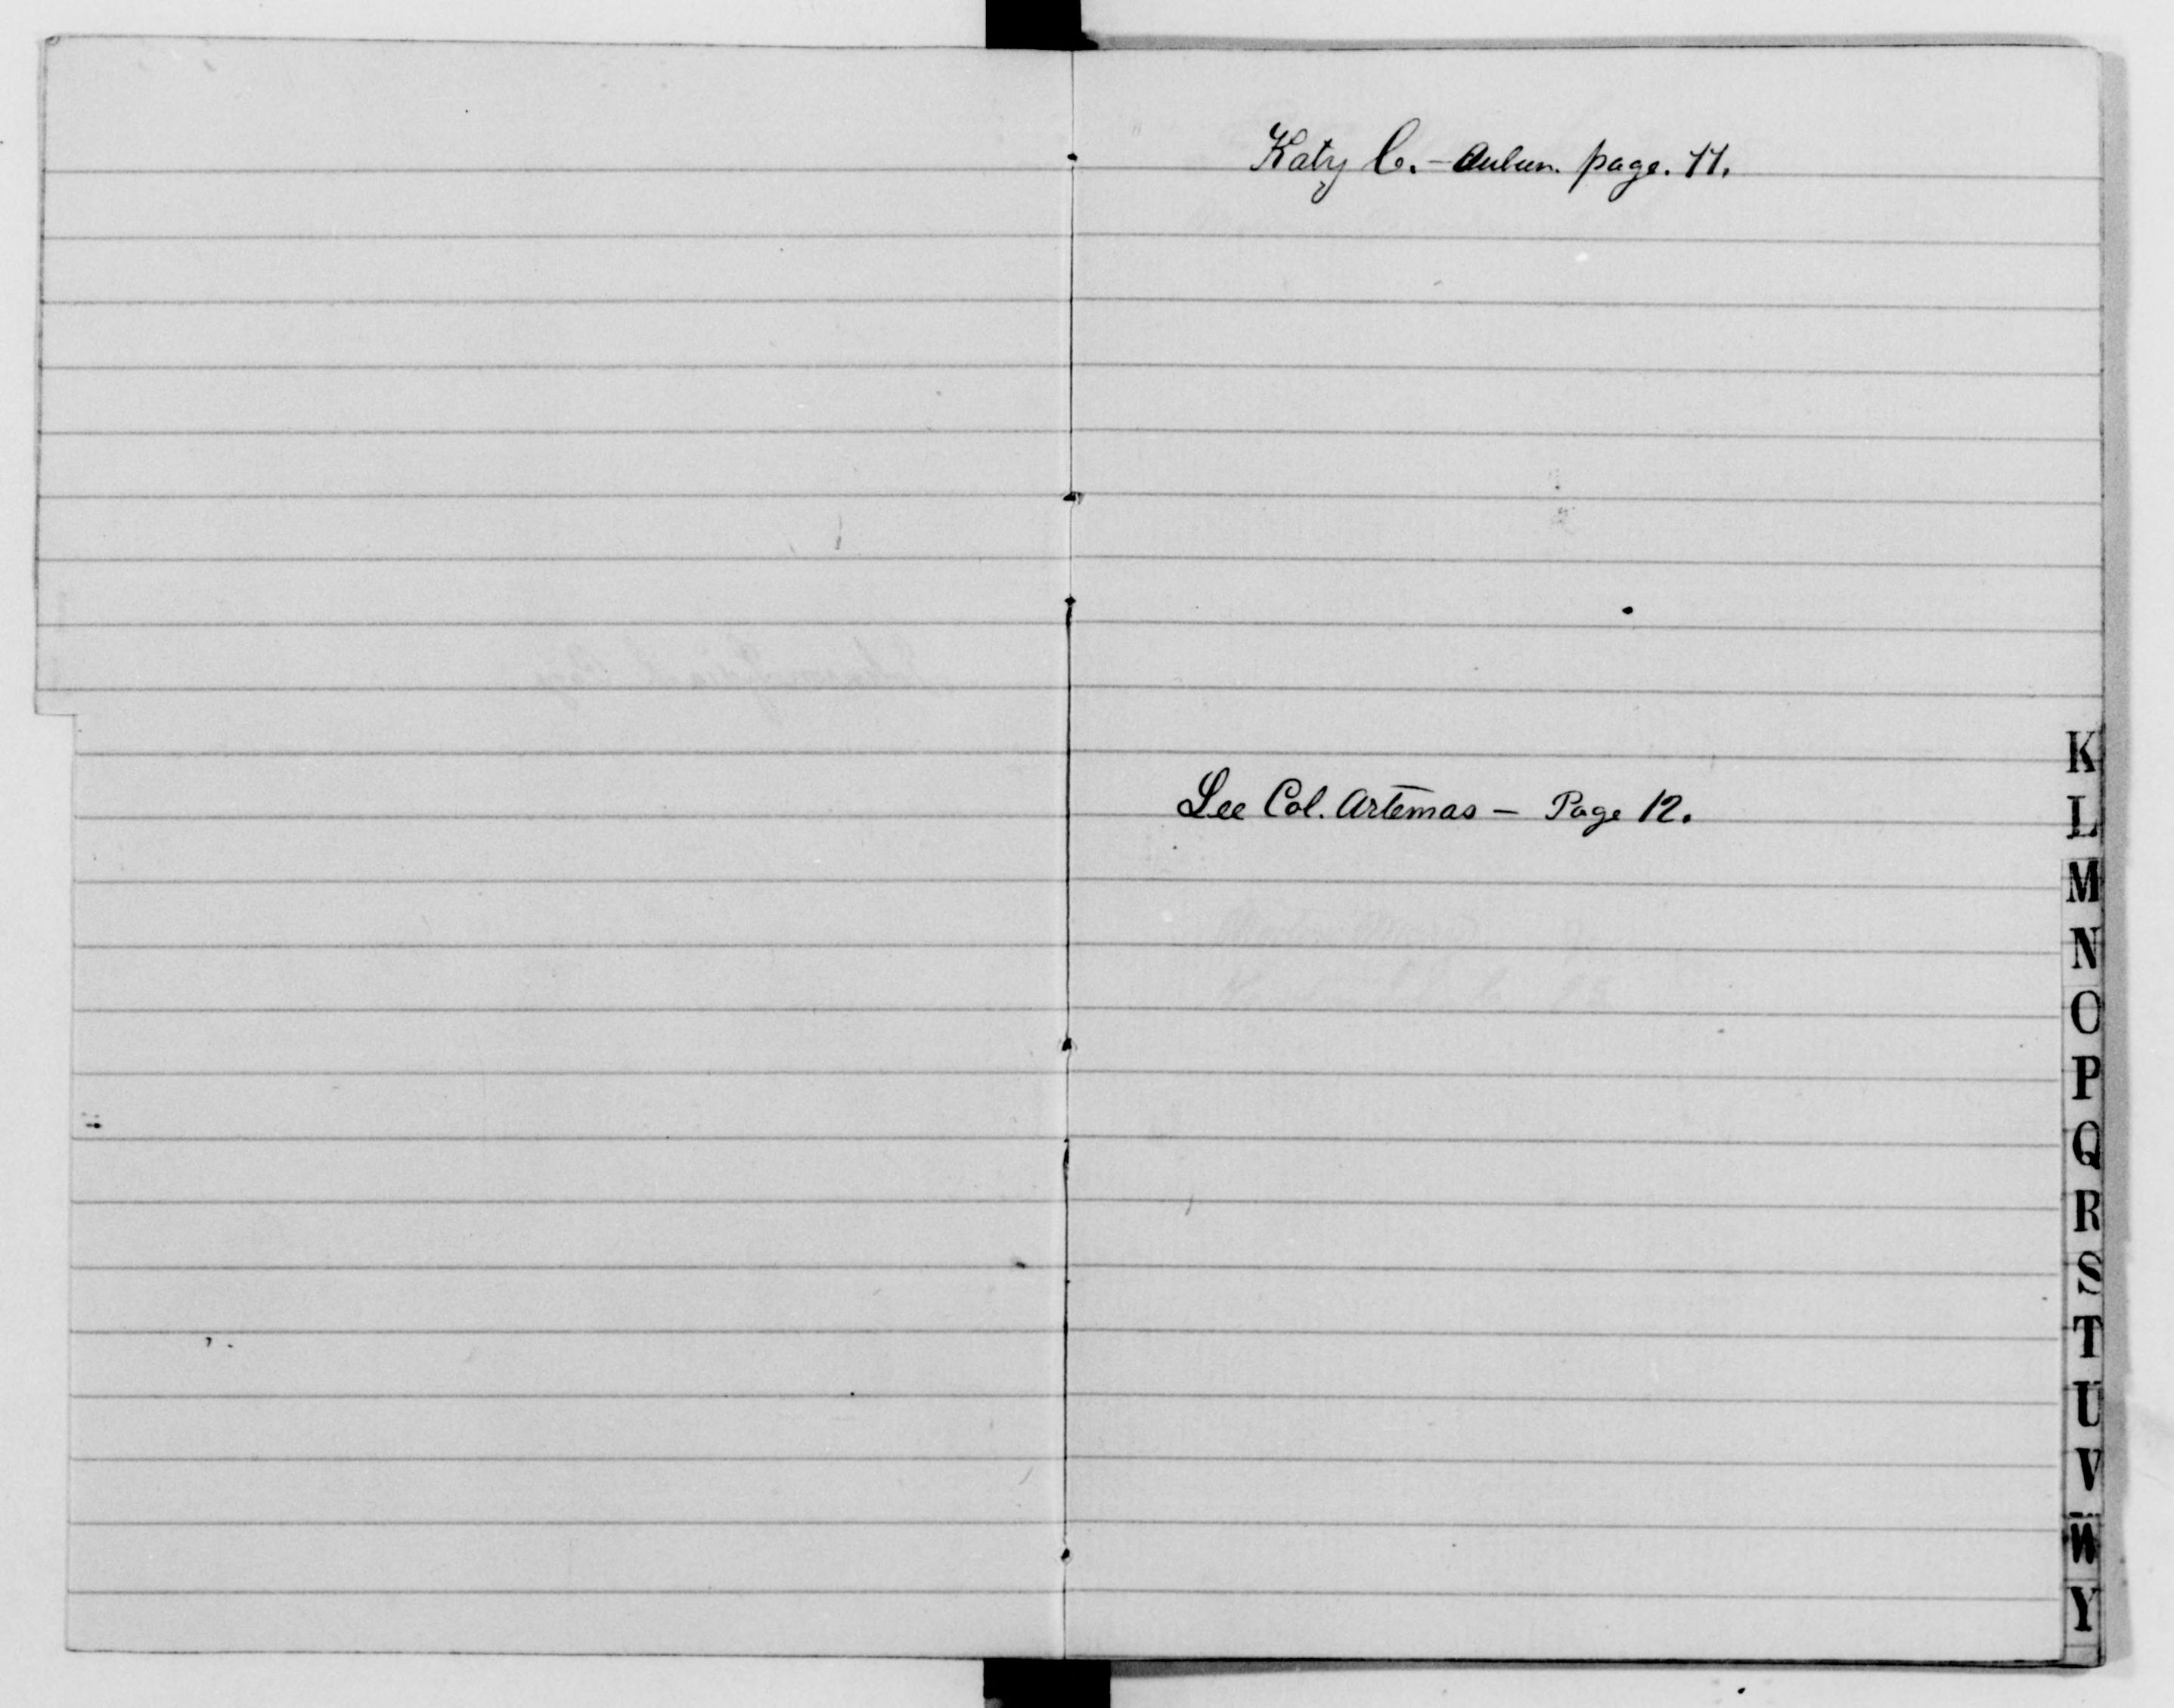 Katy C. - Auburn. page. 11.
Lee Col. Artemas - Page 12.
K
L
M
N
O
P
Q
R
S
T
U
V
W
Y